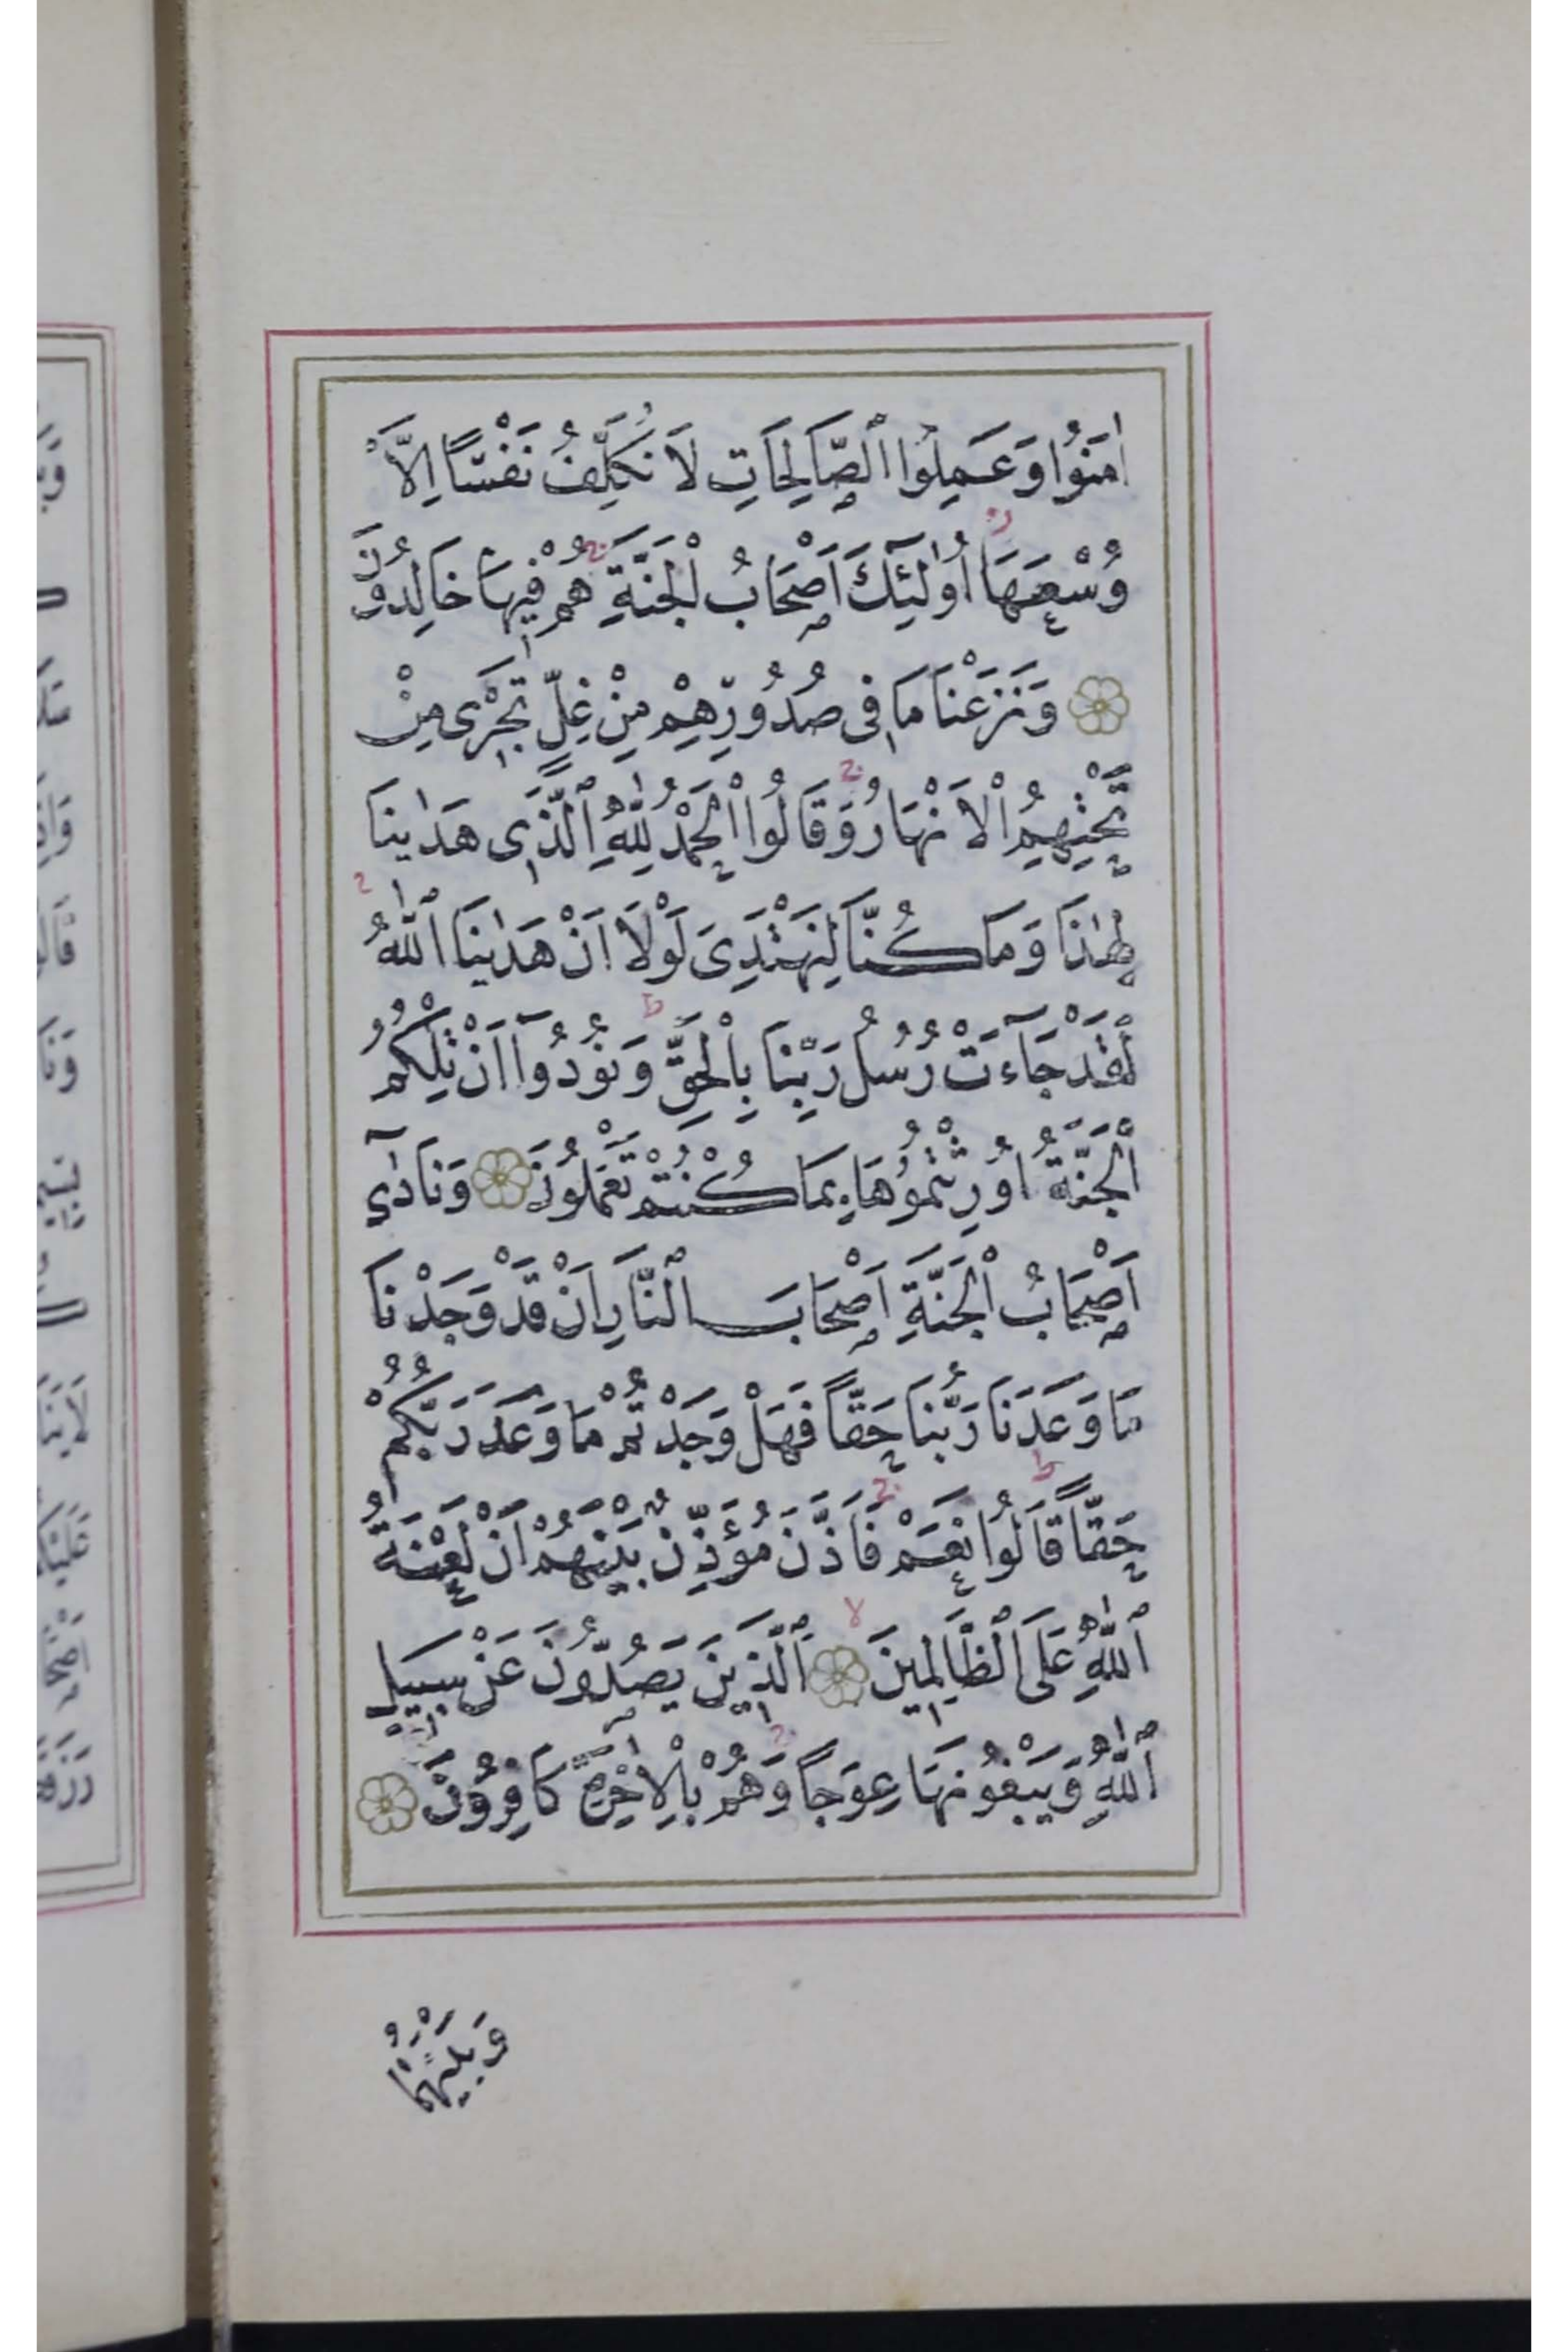 اٰمَنُوا وَعَمِلُوا الصَّالِحَاتِ لَا نُكَلِّفُ نَفْسًا اِلَّا
وُسْعَهَا اُولٰئِكَ اَصْحَابُ الْجَنَّةِ هُمْ فِيهَا خَالِدُونَ
وَنَزَعْنَا مَا فِى صُدُورِهِمْ مِنْ غِلٍّ تَجْرِى مِنْ
تَحْتِهِمُ الْاَنْهَارُ وَقَالُوا الْحَمْدُ لِلّٰهِ الَّذِى هَدٰينَا
لِهٰذَا وَمَا كُنَّا لِنَهْتَدِىَ لَوْلَا اَنْ هَدٰينَا اللّٰهُ
لَقَدْ جَاءَتْ رُسُلُ رَبِّنَا بِالْحَقِّ وَنُودُوا اَنْ تِلْكُمُ
الْجَنَّةُ اُورِثْتُمُوهَا بِمَا كُنْتُمْ تَعْمَلُونَ وَنَادٰى
اَصْحَابُ الْجَنَّةِ اَصْحَابَ النَّارِ اَنْ قَدْ وَجَدْنَا
مَا وَعَدَنَا رَبُّنَا حَقًّا فَهَلْ وَجَدْتُمْ مَا وَعَدَ رَبُّكُمْ
حَقًّا قَالُوا نَعَمْ فَاَذَّنَ مُؤَذِّنٌ بَيْنَهُمْ اَنْ لَعْنَةُ
اللّٰهِ عَلَى الظَّالِمِينَ اَلَّذِينَ يَصُدُّونَ عَنْ سَبِيلِ
اللّٰهِ وَيَبْغُونَهَا عِوَجًا وَهُمْ بِالْاٰخِرَةِ كَافِرُونَ
وَبَيْنَهُمَا